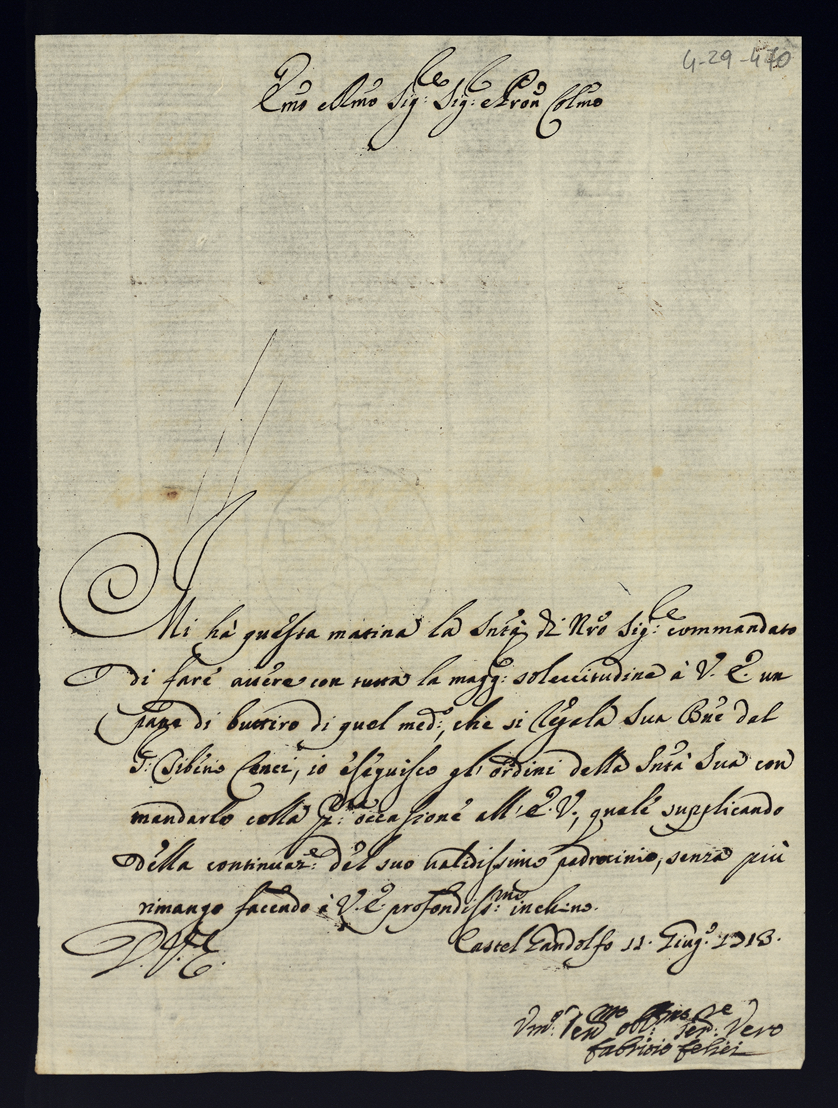 4-29-470
Emo e Rmo Sig.re Sig.re e Pron Colmo
Mi há questa matina la Sntà di Nro Sig.re commandato
di fare avere con tutta la magg: solecitudine à V. E. un
pane di buttiro di quel med:, che si regala Sua Bne dal
Cenci, io eseguisco gl'ordini della Sntà Sua con
mandarlo colla pr:ma occasione all'E. V., quale supplicando
della continuaz.e del suo validissimo padrocinio, senza più
rimango facendo à V. E. profondiss:mo inchino.
D. V. E. Castel Gandolfo 11. Giug.o 1713.
Vm.o Dev.mo obl.mo ser.re Vero
Fabritio Felici